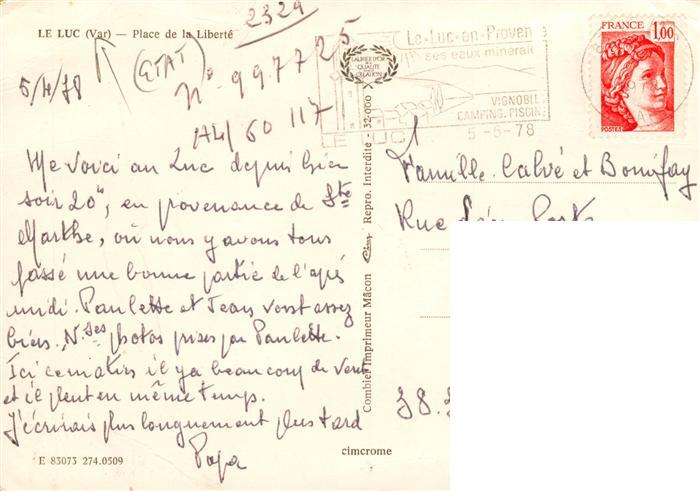 2324
LE LUC (Var) — Place de la Liberté
(ETAT)
5/4/78
N° 997725
A4/60117
Me voici au Luc depuis hier
soir 20h, en provenance de Ste
Marthe, où nous y avons tous
passé une bonne partie de l'après
midi. Paulette et Jean vont assez
bien. Nses photos prises par Paulette.
Ici ce matin il y a beaucoup de vent
et il pleut en même temps.
J'écrirais plus longuement plus tard
Papa
E 83073 274.0509
cimcrome
Combier Imprimeur Mâcon
Cim
Repro. Interdite - 32-000 X
LAURIER D'OR DE LA QUALITÉ CRÉATION
Le-Luc-en-Provence
ses eaux minérales
VIGNOBLE
CAMPING.PISCINE
LE LUC
5-5-78
FRANCE 1,00
POSTES
Famille Calvé et Bonifay
Rue
38.